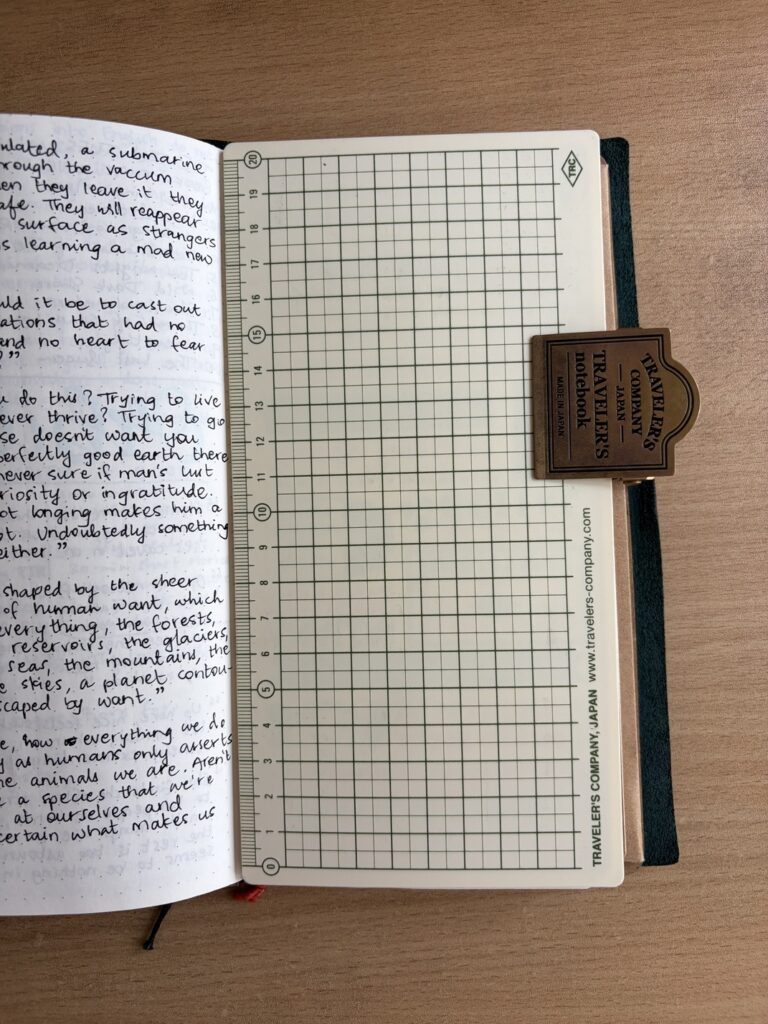 ulated, a submarine
rough the vaccum
en they leave it they
afe. They will reappear
surface as strangers
s learning a mad new
uld it be to cast out
ations that had no
and no heart to fear
?”
u do this? Trying to live
ever thrive? Trying to go
se doesnt want you
perfectly good earth there
never sure if man's lust
riosity or ingratitude.
ot longing makes him a
ot. Undoubtedly something
either.”
shaped by the sheer
of human want, which
everything, the forests,
reservoirs, the glaciers,
seas, the mountains, the
e skies, a planet contou-
scaped by want.”
e, how everything we do
y as humans only asserts
he animals we are. Aren't
e a species that we're
at ourselves and
certain what makes us
20
19
18
17
16
15
14
13
12
11
10
9
8
7
6
5
4
3
2
1
0
TRC
TRAVELER'S
COMPANY
JAPAN
TRAVELER'S
notebook
MADE IN JAPAN
TRAVELER'S COMPANY, JAPAN www.travelers-company.com